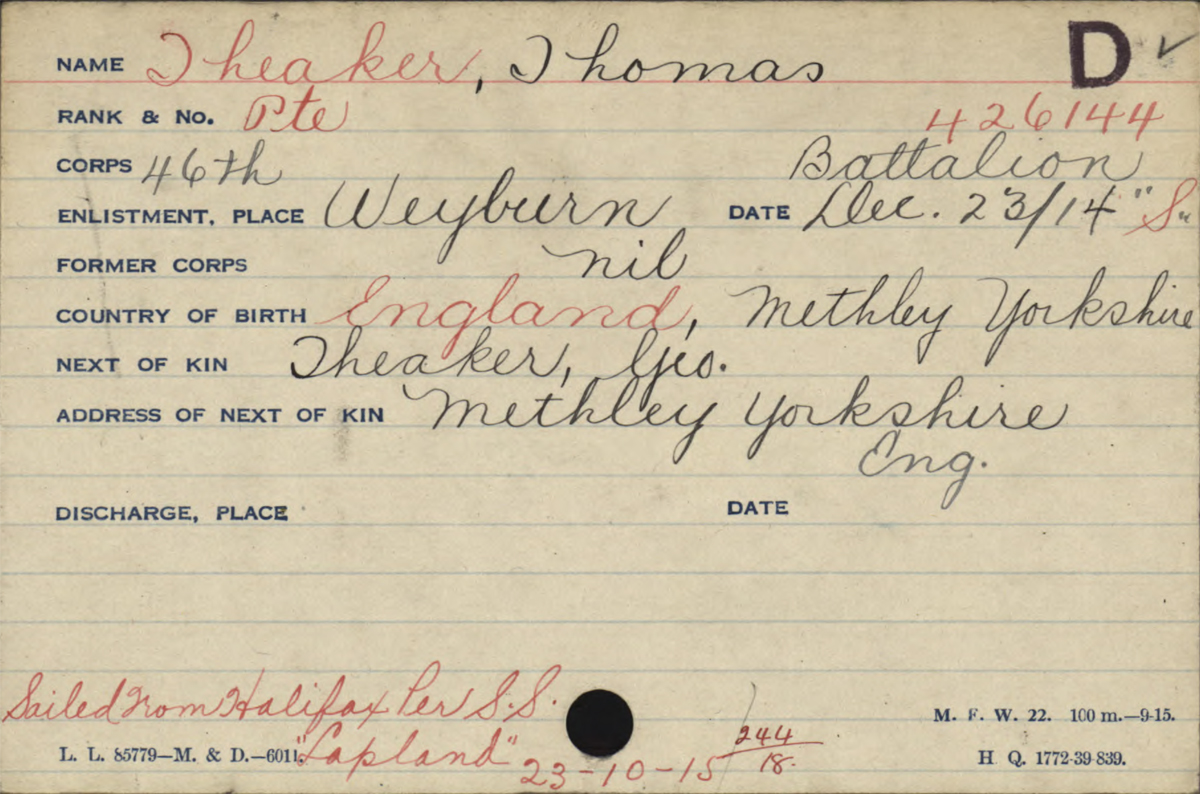 NAME Theaker, Thomas D ✓
RANK & No. Pte 426144
CORPS 46th Battalion
ENLISTMENT, PLACE Weyburn DATE Dec. 23/14 "S"
FORMER CORPS nil
COUNTRY OF BIRTH England, Methley Yorkshire
NEXT OF KIN Theaker, Geo.
ADDRESS OF NEXT OF KIN Methley Yorkshire
Eng.
DISCHARGE, PLACE DATE
Sailed From Halifax Per S.S.
"Lapland" 23-10-15 244/18.
M. F. W. 22. 100 m.—9-15.
L. L. 85779—M. & D.—6011 H Q. 1772-39-839.